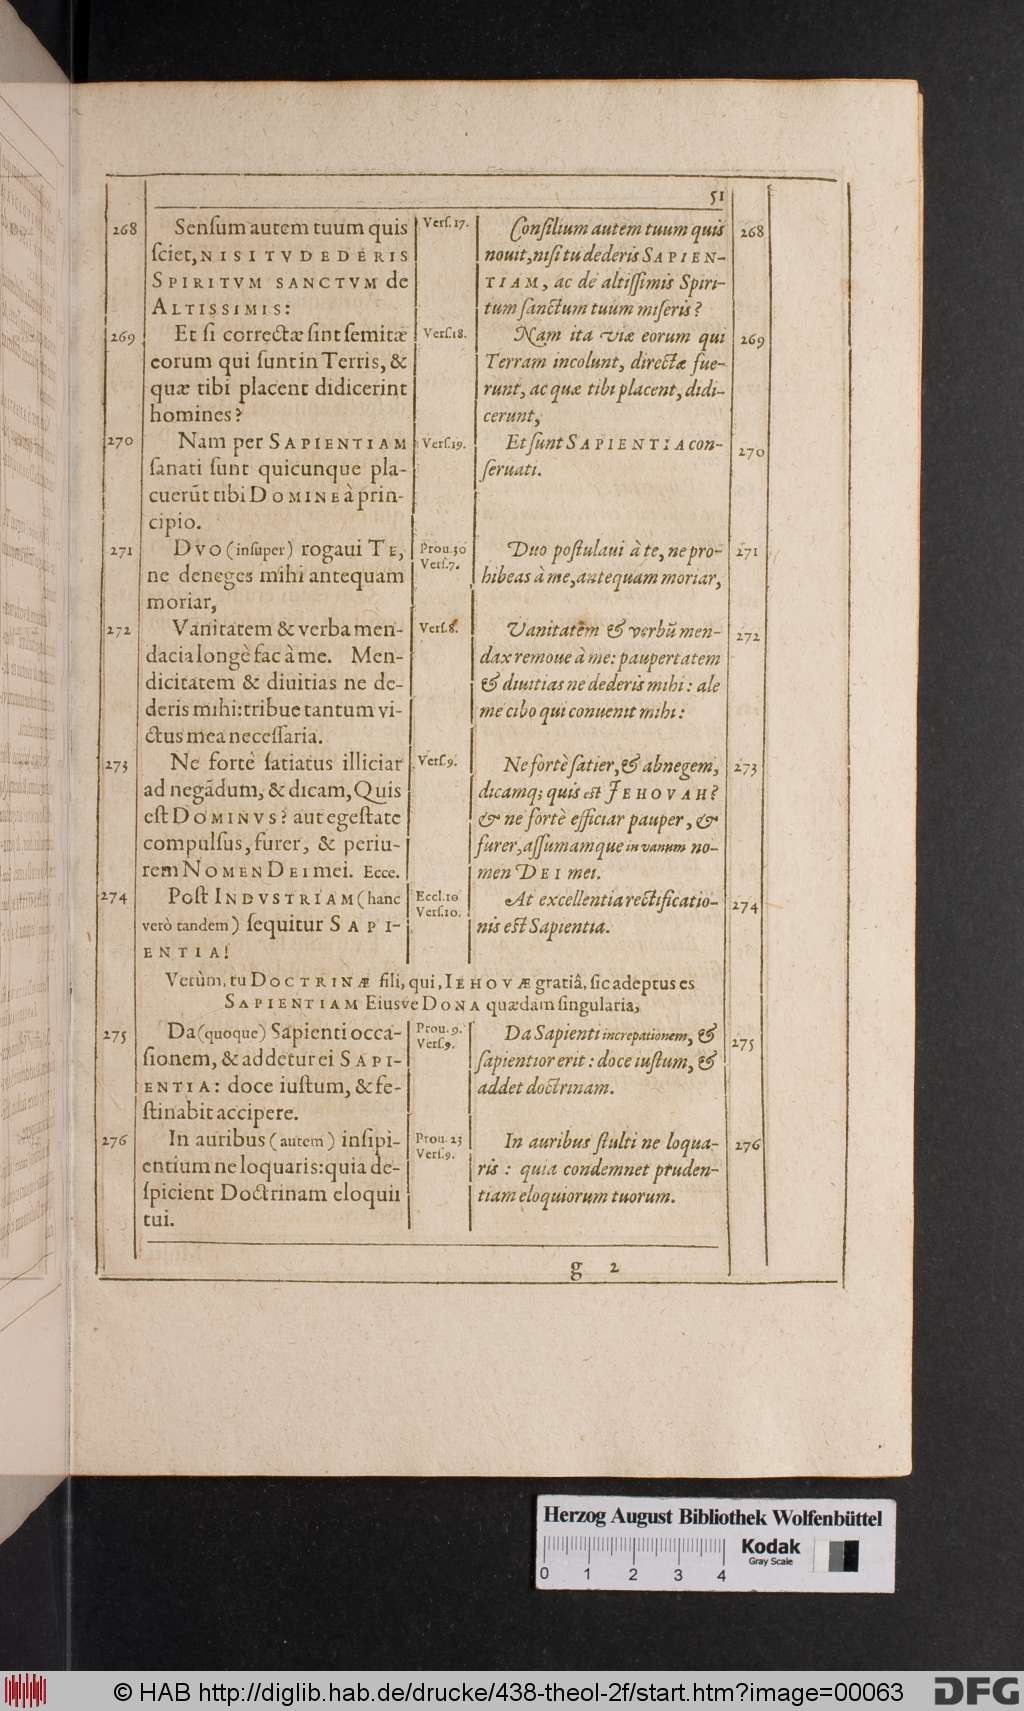 51
268
Sensum autem tuum quis
sciet, NISI TV DEDERIS
SPIRITVM SANCTVM de
ALTISSIMIS:
Vers. 17.
Consilium autem tuum quis
nouit, nisi tu dederis SAPIEN-
TIAM, ac de altissimis Spiri-
tum sanctum tuum miseris?
268
269
Et si correctæ sint semitæ
eorum qui sunt in Terris, &
quæ tibi placent didicerint
homines?
Vers. 18.
Nam ita viæ eorum qui
Terram incolunt, directæ fue-
runt, ac quæ tibi placent, didi-
cerunt,
269
270
Nam per SAPIENTIAM
sanati sunt quicunque pla-
cuerūt tibi DOMINE à prin-
cipio.
Vers. 19.
Et sunt SAPIENTIA con-
seruati.
270
271
DVO (insuper) rogaui TE,
ne deneges mihi antequam
moriar,
Prou. 30
Vers. 7.
Duo postulaui à te, ne pro-
hibeas à me, antequam moriar,
271
272
Vanitatem & verba men-
dacia longè fac à me. Men-
dicitatem & diuitias ne de-
deris mihi: tribue tantum vi-
ctus mea necessaria.
Vers. 8.
Vanitatem & verbū men-
dax remoue à me: paupertatem
& diuitias ne dederis mihi: ale
me cibo qui conuenit mihi:
272
273
Ne fortè satiatus illiciar
ad negādum, & dicam, Quis
est DOMINVS? aut egestate
compulsus, furer, & periu-
rem NOMEN DEI mei. Ecce.
Vers. 9.
Ne fortè satier, & abnegem,
dicamq; quis est JEHOVAH?
& ne fortè efficiar pauper, &
furer, assumamque in vanum no-
men DEI mei.
273
274
Post INDVSTRIAM (hanc
verò tandem) sequitur SAPI-
ENTIA!
Eccl. 10
Vers. 10.
At excellentia rectificatio-
nis est Sapientia.
274
Verùm, tu DOCTRINÆ fili, qui, IEHOVÆ gratiâ, sic adeptus es
SAPIENTIAM Eiusve DONA quædam singularia,
275
Da (quoque) Sapienti occa-
sionem, & addetur ei SAPI-
ENTIA: doce iustum, & fe-
stinabit accipere.
Prou. 9.
Vers. 9.
Da Sapienti increpationem, &
sapientior erit: doce iustum, &
addet doctrinam.
275
276
In auribus (autem) insipi-
entium ne loquaris: quia de-
spicient Doctrinam eloquii
tui.
Prou. 23
Vers. 9.
In auribus stulti ne loqua-
ris: quia condemnet pruden-
tiam eloquiorum tuorum.
276
g 2
Herzog August Bibliothek Wolfenbüttel
0 1 2 3 4
Kodak
Gray Scale
© HAB http://diglib.hab.de/drucke/438-theol-2f/start.htm?image=00063
DFG